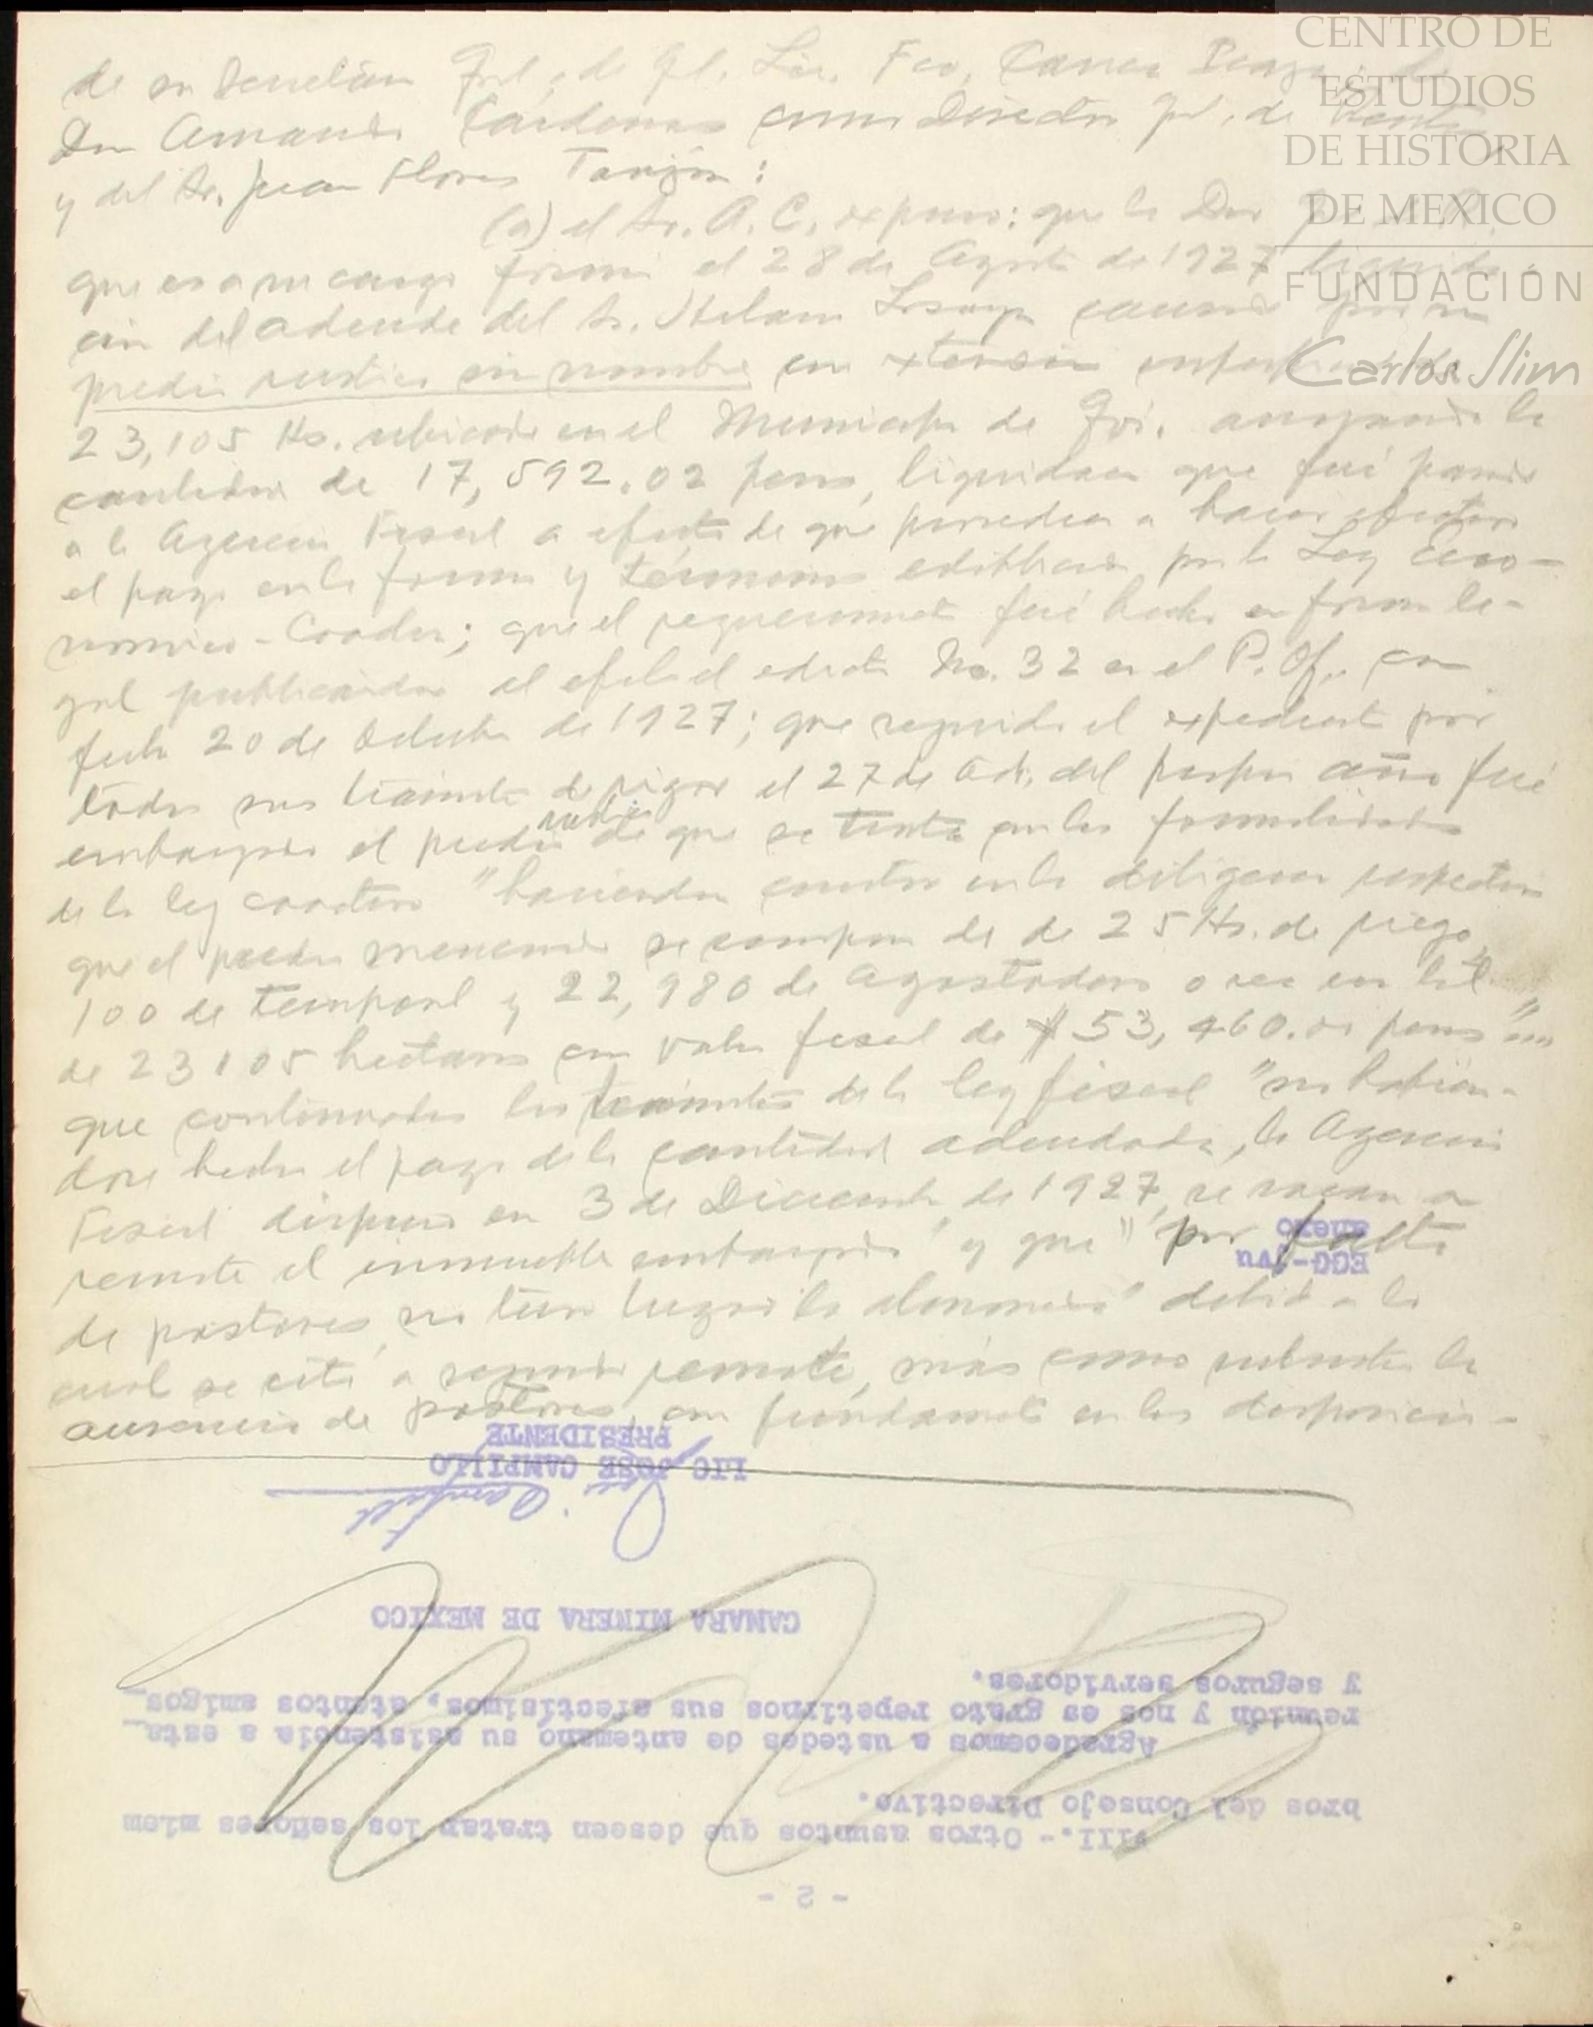 de su Secretario Gral. de Gl. Lic. Fco.
Don Armando Cárdenas como Director Gral. de Rentas
y del Sr. Juan Flores Tarijón:
(a) el Sr. A. C. expuso: que la Dir
que es a su cargo formó el 28 de Agosto de 1927 liquida-
ción del adeudo del Sr. Lozoya causado por su
predio rustico sin nombre con extensión
23,105 Hs. ubicado en el Municipio de arrojando la
cantidad de 17,592.02 pesos, liquidacn que fué
a la Agencia Fiscal a efecto de que procediera a hacer efectivo
el pago en la forma y términos establecidos por la Ley Eco-
nomico-Coactiva; que el requerimiento fué hecho en forma le-
gal publicandose al efecto el edicto No. 32 en el P. Of. con
fecha 20 de Octubre de 1927; que seguido el expediente por
todos sus trámites de rigor el 27 de del propio año fué
embargado el predio rustico de que se trata con las formalidades
de la ley coactiva "haciendose constar en la diligencia respectiva
que el predio mencionado se compone de de 25 Hs. de riego,
100 de temporal y 22,980 de agostadero o sea un total
de 23105 hectareas con valor fiscal de $53,460.00 pesos"
que continuados los trámites de la ley fiscal "no habien-
dose hecho el pago de la cantidad adeudada, la Agencia
Fiscal dispuso en 3 de Diciembre de 1927, se sacara a
remate el inmueble embargado" y que "por falta
de postores no tuvo lugar la almoneda" debido a lo
cual se citó a segundo remate, más como subsistía la
ausencia de postores, con fundamento en las disposicio-
CENTRO DE
ESTUDIOS
DE HISTORIA
DE MEXICO
FUNDACIÓN
Carlos Slim
- 2 -
VIII.- Otros asuntos que deseen tratar los señores miem
bros del Consejo Directivo.
Agradecemos a ustedes de antemano su asistencia a esta
reunión y nos es grato repetirnos sus afectísimos, atentos amigos
y seguros servidores.
CAMARA MINERA DE MEXICO
José Campillo
LIC JOSE CAMPILLO
PRESIDENTE
EGG-jvu
anexo